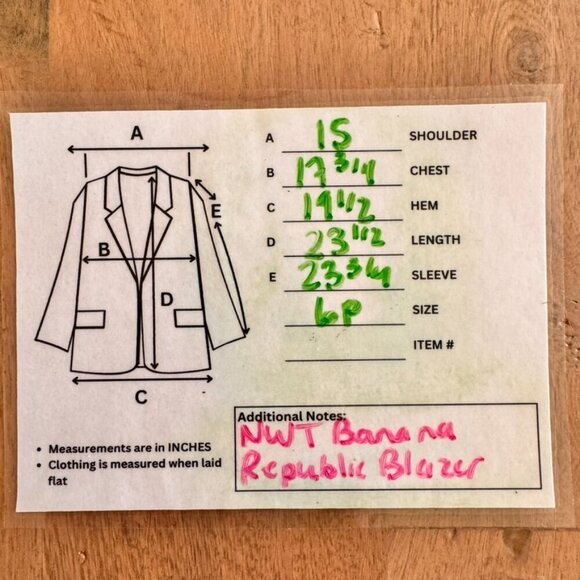 A
A 15 SHOULDER
B 17 3/4 CHEST
C 19 1/2 HEM
D 23 1/2 LENGTH
E 23 3/4 SLEEVE
6P SIZE
ITEM #
E
B
D
C
• Measurements are in INCHES
• Clothing is measured when laid
flat
Additional Notes:
NWT Banana
Republic Blazer